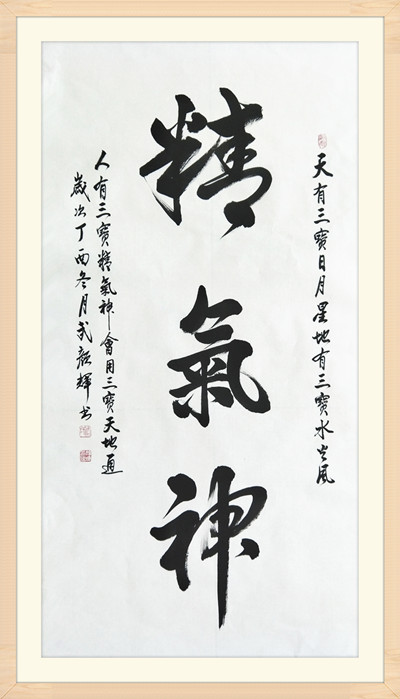 天有三寳日月星地有三寳水火風
精氣神
人有三寳精氣神會用三寳天地通
歲次丁酉冬月武彦輝书